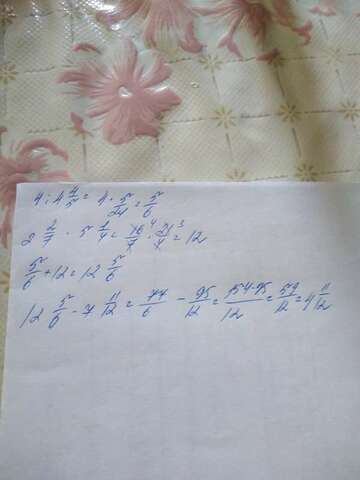 4 : 4 4/5 = 4 · 5/24 = 5/6
2 2/7 · 5 1/4 = 16/7 · 21/4 = 12
5/6 + 12 = 12 5/6
12 5/6 - 7 11/12 = 77/6 - 95/12 = 154-95/12 = 59/12 = 4 11/12